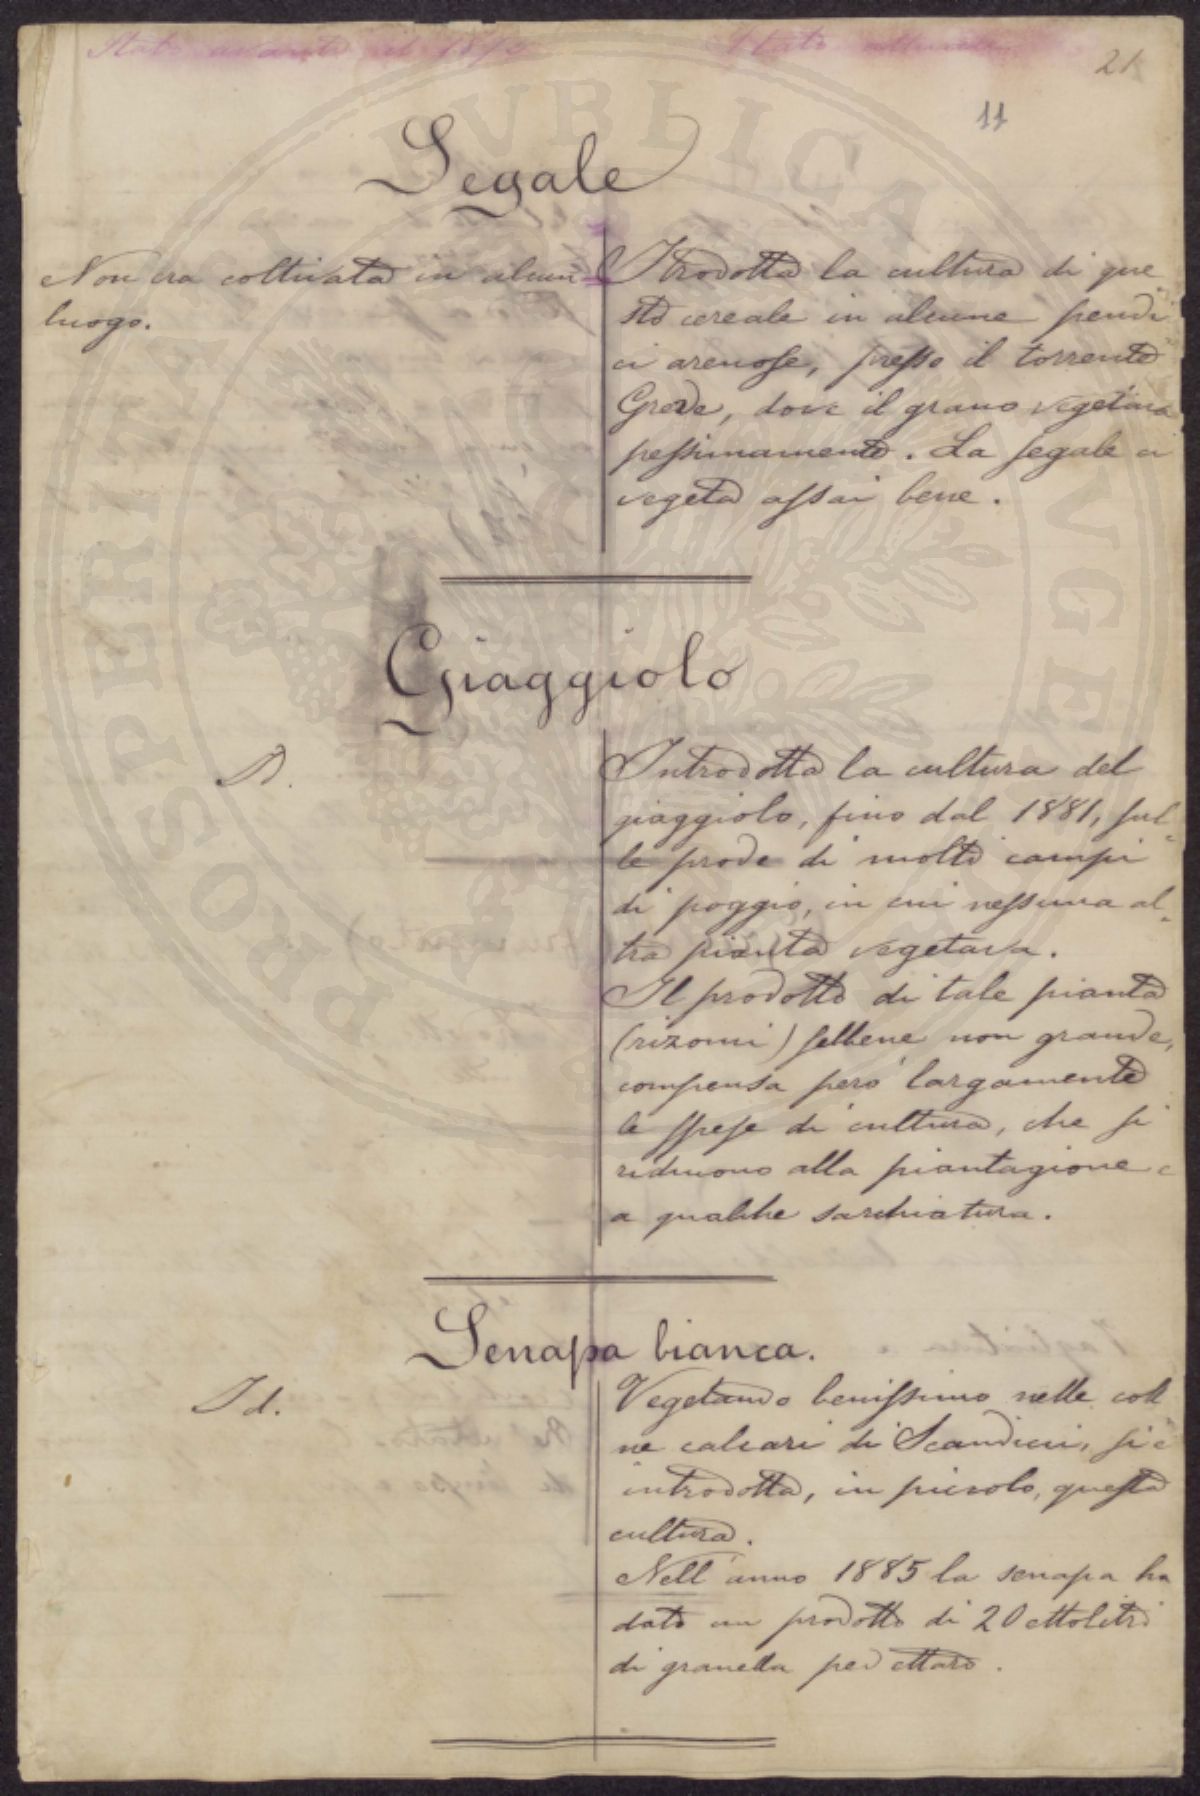 Stato avanti il 18
Stato attuale
21
11
Segale
Non era coltivata in alcun
luogo.
Itrodotta la cultura di que
sto cereale in alcune pendi
ci arenose, presso il torrente
Greve, dove il grano vegetava
pessimamente. La segale ci
vegeta assai bene.
Giaggiolo
Introdotta la cultura del
giaggiolo, fino dal 1881, sul-
le prode di molti campi
di poggio, in cui nessuna al-
tra pianta vegetava.
Il prodotto di tale pianta
(rizomi) sebbene non grande,
compensa però largamente
le spese di cultura, che si
riducono alla piantagione e
a qualche sarchiatura.
Senapa bianca.
Id.
Vegetando benissimo nelle colli
ne calcari di Scandicci, si è
introdotta, in piccolo, questa
cultura.
Nell'anno 1885 la senapa ha
dato un prodotto di 20 ettolitri
di granella per ettaro.
PROSPERITAS PUBLICA AUGE